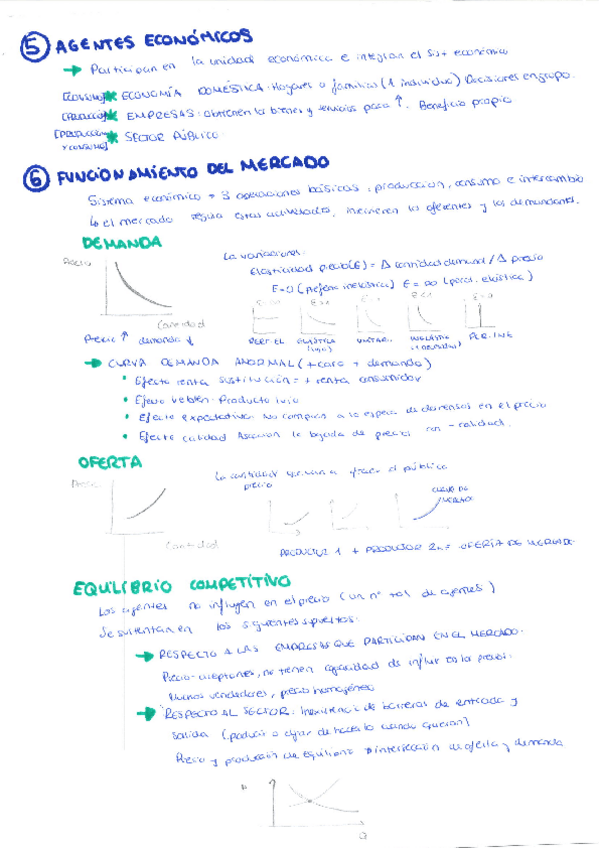 5 AGENTES ECONÓMICOS
→ Participan en la unidad económica e integran el sist económico
[CONSUMO] * ECONOMÍA DOMÉSTICA: Hogares o familias (1 individuo) Decisiones en grupo.
[PRODUCCIÓN] * EMPRESAS: obtienen los bienes y servicios para ↑. Beneficio propio
[PRODUCCIÓN Y CONSUMO] * SECTOR PÚBLICO.
6 FUNCIONAMIENTO DEL MERCADO
Sistema económico → 3 operaciones básicas: producción, consumo e intercambio
↳ el mercado regula estas actividades, los oferentes y los demandantes.
DEMANDA
Precio
Cantidad
La variaciones:
Elasticidad precio (E) = Δ cantidad demand / Δ precio
E=0 (Perfect inelástica) E=∞ (perf. elástica)
PERF. EL ELÁSTICA UNITAR. INELÁSTIC PER. INE
Precio ↑ demanda ↓
→ CURVA DEMANDA ANORMAL (+ caro + demanda)
• Efecto renta sustitución = + renta consumidor
• Efecto Veblen. Producto lujo
• Efecto expectativa No compran a la espera de descensos en el precio
• Efecto calidad Asocian la bajada de precios con - calidad.
OFERTA
Precio
Cantidad
La cantidad que van a ofrecer al público
precio
CURVA DE MERCADO
PRODUCTOR 1 + PRODUCTOR 2 = OFERTA DE MERCADO
EQUILIBRIO COMPETITIVO
Los agentes no influyen en el precio (un nº tal de agentes)
Se sustentan en los siguientes supuestos:
→ RESPECTO A LAS EMPRESAS QUE PARTICIPAN EN EL MERCADO.
Precio-aceptantes, no tienen capacidad de influir en los precios.
Muchos vendedores, precio homogéneo
→ RESPECTO AL SECTOR: Inexistencia de barreras de entrada y
salida (producir o dejar de hacerlo cuando quieran)
Precio y producción de equilibrio → intersección de oferta y demanda